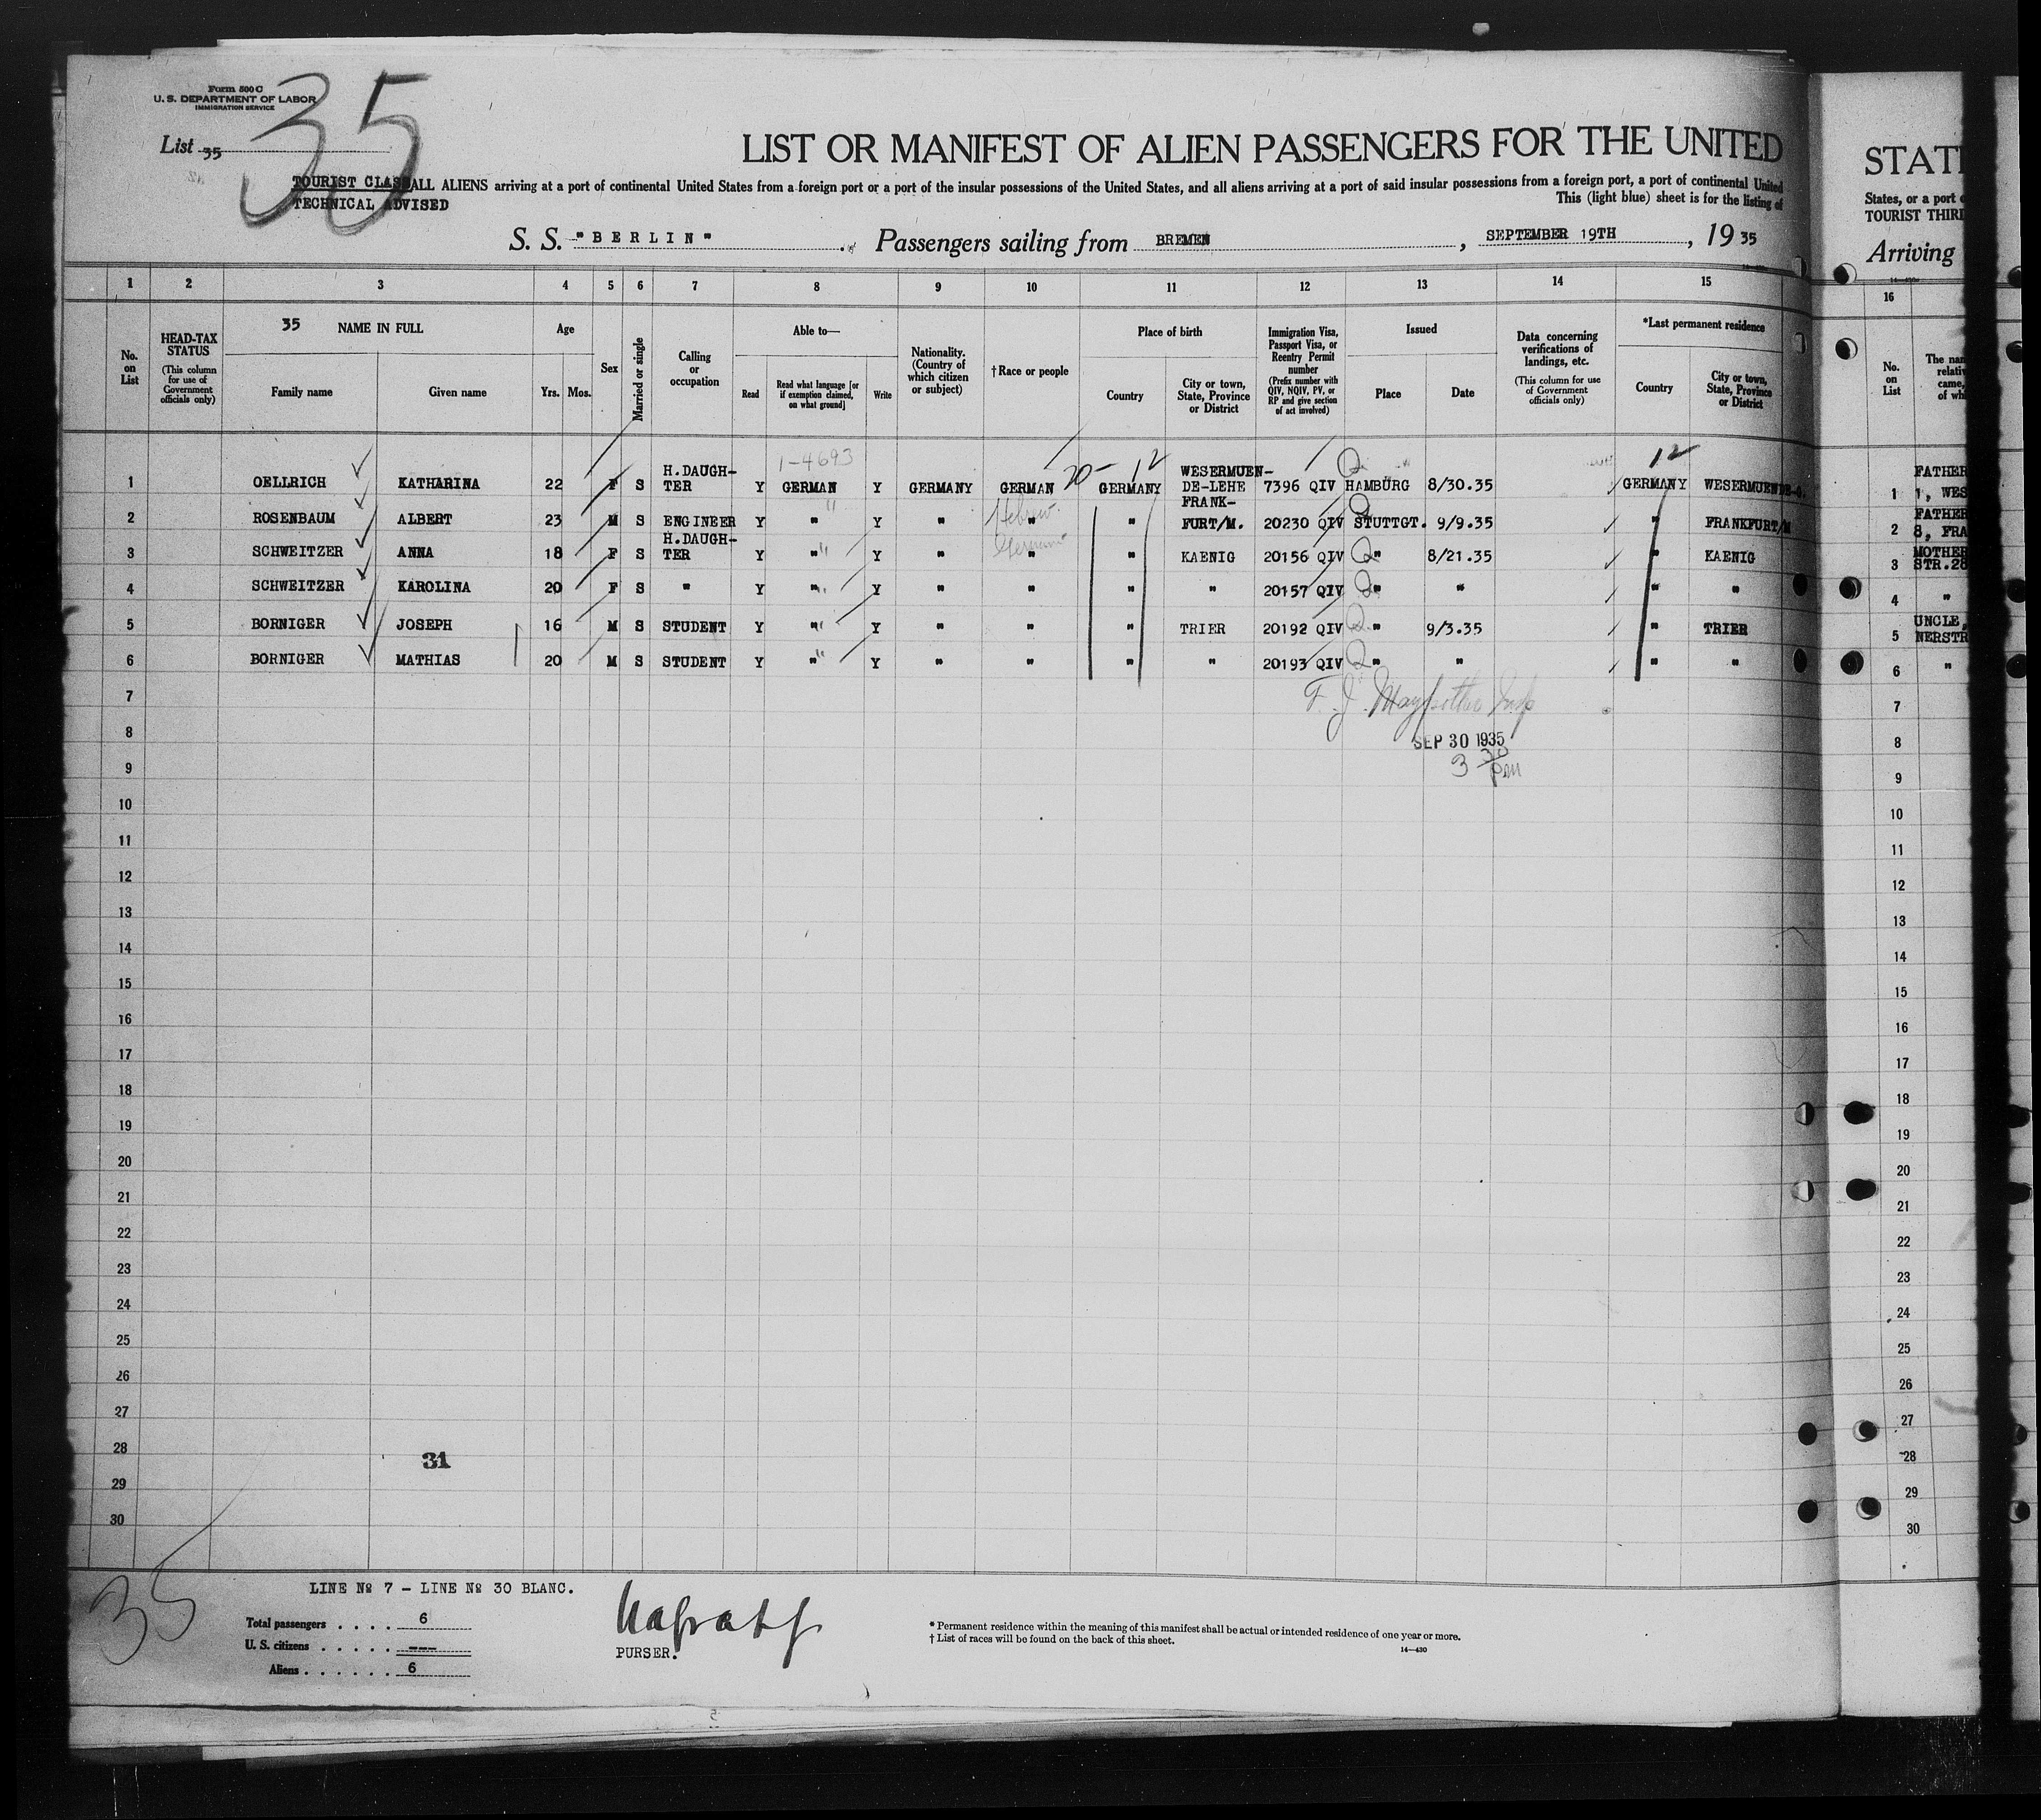 Form 500 C
U. S. DEPARTMENT OF LABOR
IMMIGRATION SERVICE
35
List 35
LIST OR MANIFEST OF ALIEN PASSENGERS FOR THE UNITED
TOURIST CLASS ALL ALIENS arriving at a port of continental United States from a foreign port or a port of the insular possessions of the United States, and all aliens arriving at a port of said insular possessions from a foreign port, a port of continental United
TECHNICAL ADVISED This (light blue) sheet is for the listing of
S. S. "BERLIN" Passengers sailing from BREMEN, SEPTEMBER 19TH, 19 35
1 2 3 4 5 6 7 8 9 10 11 12 13 14 15
No. on List
HEAD-TAX STATUS (This column for use of Government officials only)
35 NAME IN FULL
Family name Given name
Age
Yrs. Mos.
Sex
Married or single
Calling or occupation
Able to—
Read Read what language [or if exemption claimed, on what ground] Write
Nationality. (Country of which citizen or subject)
†Race or people
Place of birth
Country City or town, State, Province or District
Immigration Visa, Passport Visa, or Reentry Permit number (Prefix number with QIV, NQIV, PV, or RP and give section of act involved)
Issued
Place Date
Data concerning verifications of landings, etc. (This column for use of Government officials only)
*Last permanent residence
Country City or town, State, Province or District
1-4693
20- 12 12
1 OELLRICH KATHARINA 22 F S H.DAUGH-TER Y GERMAN Y GERMANY GERMAN GERMANY WESERMUEN-DE-LEHE 7396 QIV HAMBURG 8/30.35 GERMANY WESERMUENDE-G.
2 ROSENBAUM ALBERT 23 M S ENGINEER Y " Y " " Hebrew " FRANK-FURT/M. 20230 QIV STUTTGT. 9/9.35 " FRANKFURT/M
3 SCHWEITZER ANNA 18 F S H.DAUGH-TER Y " Y " " German " KAENIG 20156 QIV " 8/21.35 " KAENIG
4 SCHWEITZER KAROLINA 20 F S " Y " Y " " " " 20157 QIV " " " "
5 BORNIGER JOSEPH 16 M S STUDENT Y " Y " " " TRIER 20192 QIV " 9/3.35 " TRIER
6 BORNIGER MATHIAS 20 M S STUDENT Y " Y " " " " 20193 QIV " " " "
7
F. J. Insp
8
SEP 30 1935
9
3 30 pm
10
11
12
13
14
15
16
17
18
19
20
21
22
23
24
25
26
27
28
31
29
30
LINE № 7 - LINE № 30 BLANC.
35
Total passengers . . . . 6
U. S. citizens . . . . . ---
Aliens . . . . . . 6
PURSER.
* Permanent residence within the meaning of this manifest shall be actual or intended residence of one year or more.
† List of races will be found on the back of this sheet.
14—430
STATE
States, or a port o
TOURIST THIR
Arriving
16
No. on List
The nam
relativ
came,
of wh
FATHER
1 1, WES
FATHER
2 8, FRA
MOTHER
3 STR.28
4 "
UNCLE,
5 NERSTR
6 "
7
8
9
10
11
12
13
14
15
16
17
18
19
20
21
22
23
24
25
26
27
28
29
30